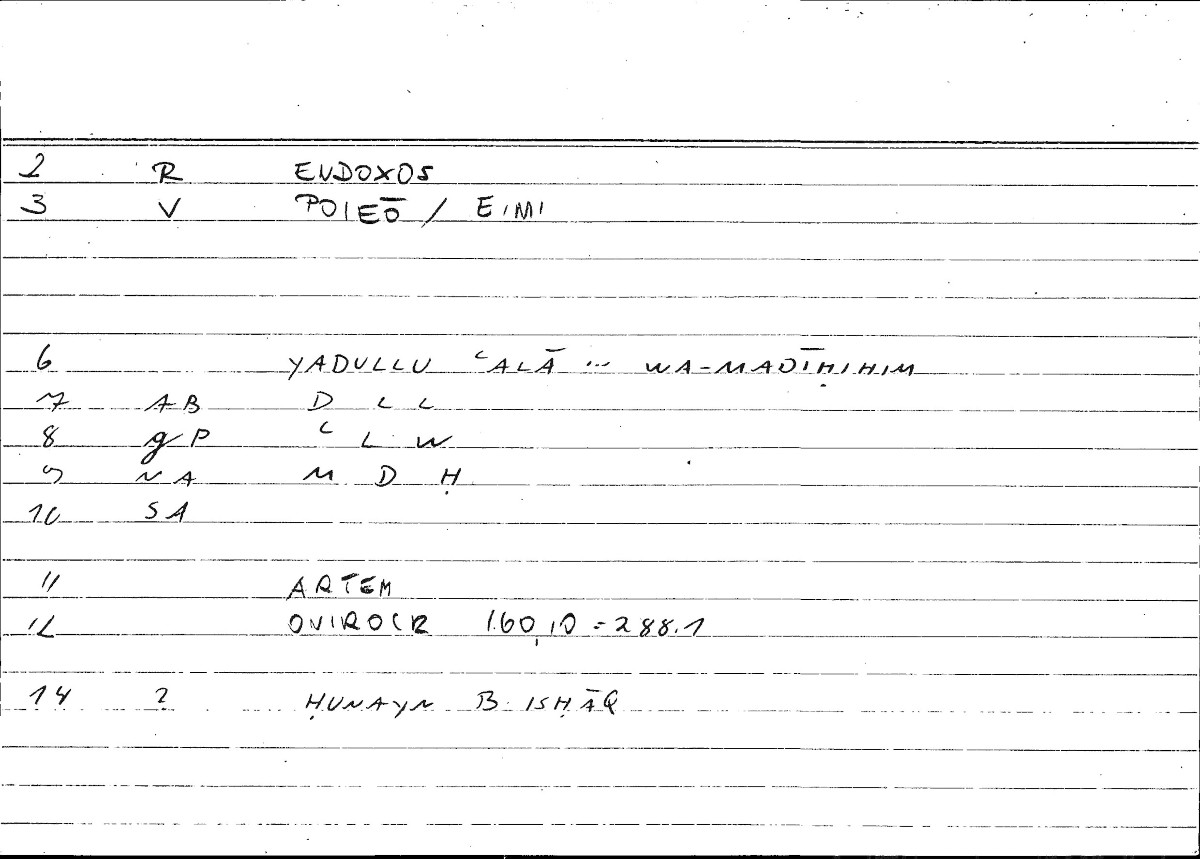 2 R ENDOXOS
3 V POIEŌ / EIMI
6 YADULLU ʿALĀ ... WA-MADĪḤIHIM
7 AB D L L
8 gP ʿ L W
9 NA M D Ḥ
10 SA
11 ARTEM
12 ONIROCR 160,10 = 288.1
14 2 ḤUNAYN B. ISḤĀQ